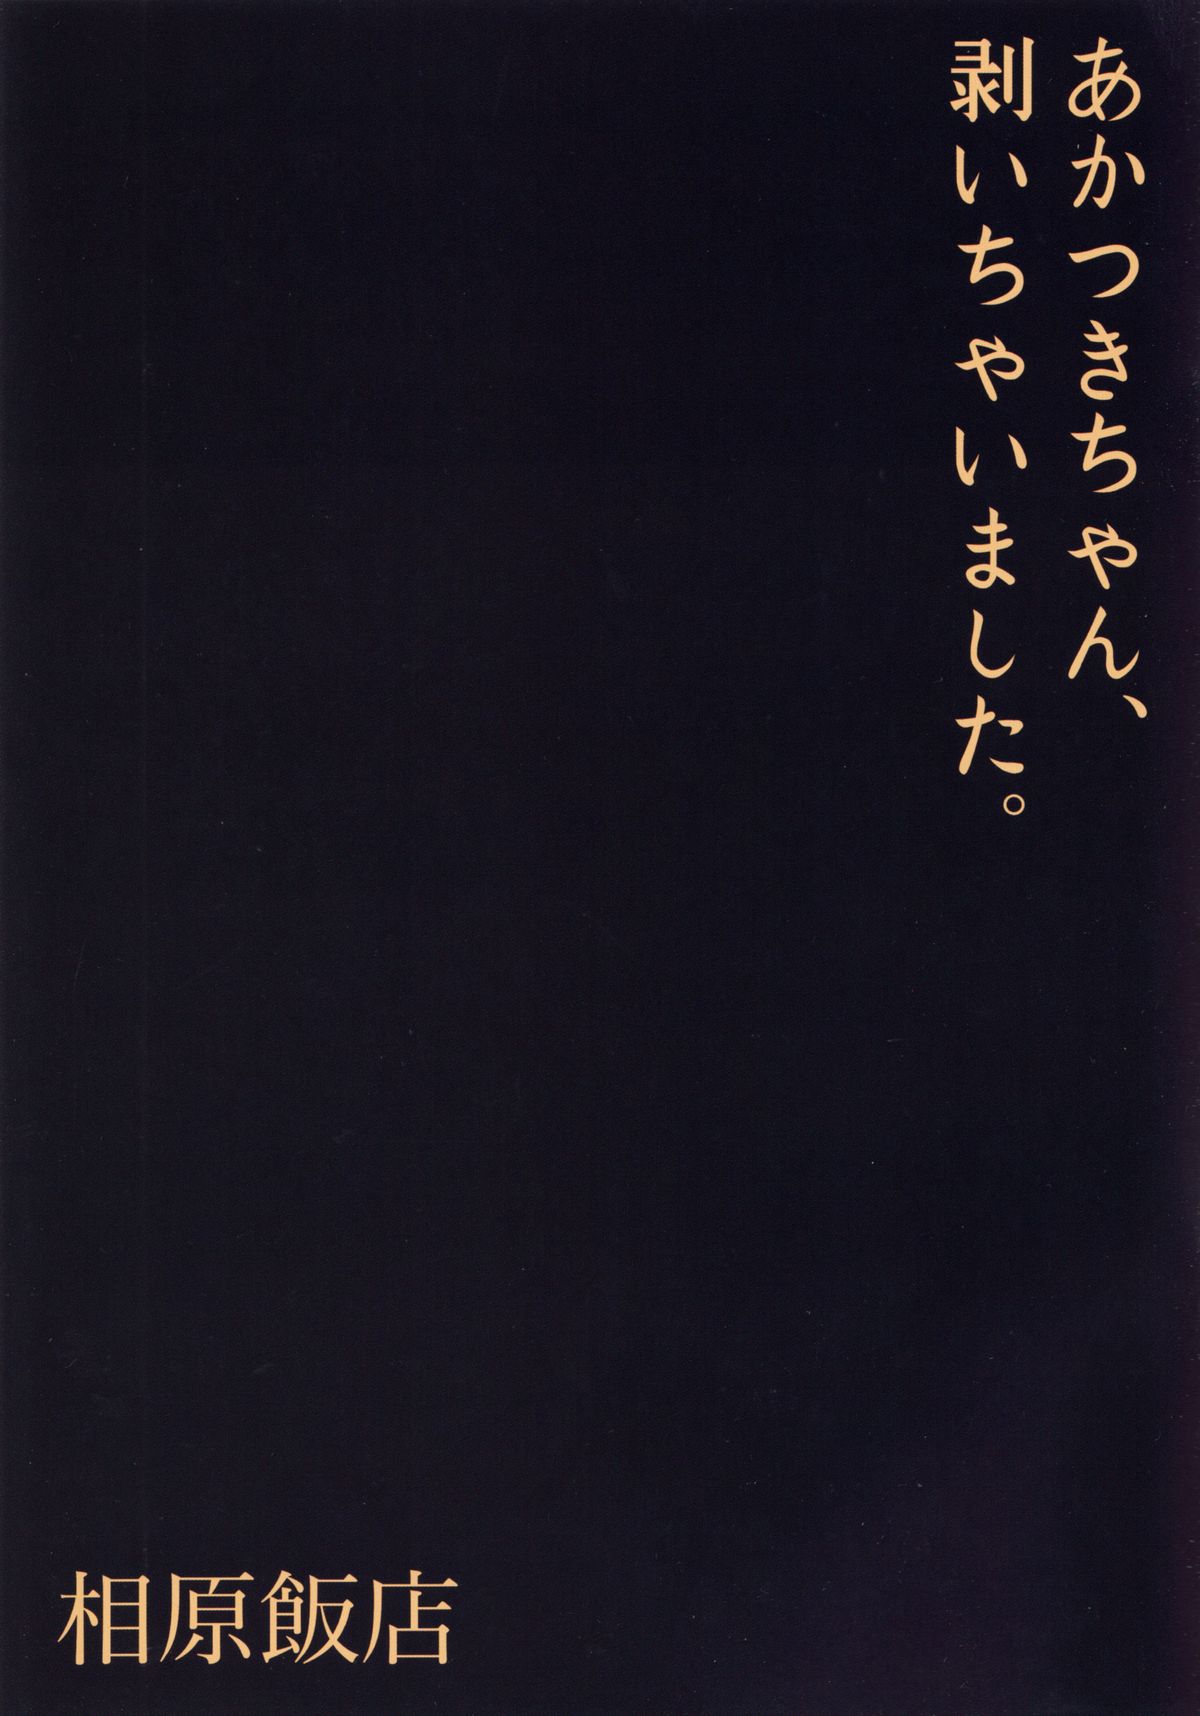 あかつきちゃん、
剥いちゃいました。
相原飯店